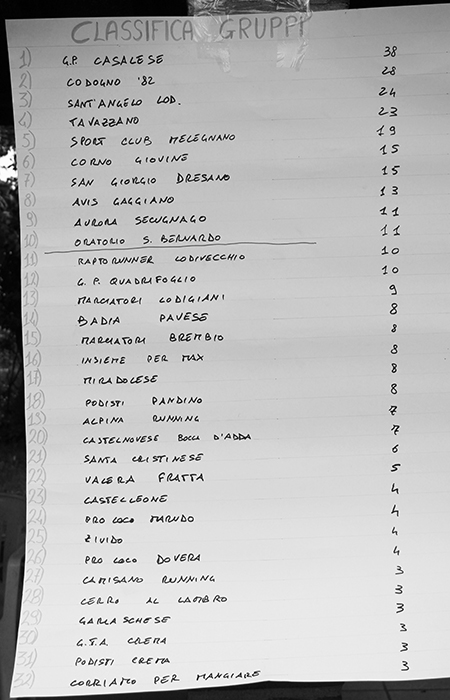 CLASSIFICA GRUPPI
1) G.P. CASALESE 38
2) CODOGNO '82 28
3) SANT'ANGELO LOD. 24
4) TAVAZZANO 23
5) SPORT CLUB MELEGNANO 19
6) CORNO GIOVINE 15
7) SAN GIORGIO DRESANO 15
8) AVIS GAGGIANO 13
9) AURORA SECUGNAGO 11
10) ORATORIO S. BERNARDO 11
11) RAPTORUNNER LODIVECCHIO 10
12) G. P. QUADRIFOGLIO 10
13) MARCIATORI LODIGIANI 9
14) BADIA PAVESE 8
15) MARCIATORI BREMBIO 8
16) INSIEME PER MAX 8
17) MIRADOLESE 8
18) PODISTI PANDINO 8
19) ALPINA RUNNING 7
20) CASTELNOVESE BOCCA D'ADDA 7
21) SANTA CRISTINESE 6
22) VALERA FRATTA 5
23) CASTELLEONE 4
24) PRO LOCO MARUDO 4
25) ZIVIDO 4
26) PRO LOCO DOVERA 4
27) CAMISANO RUNNING 3
28) CERRO AL LAMBRO 3
29) GARLASCHESE 3
30) G.T.A. CREMA 3
31) PODISTI CREMA 3
32) CORRIAMO PER MANGIARE 3